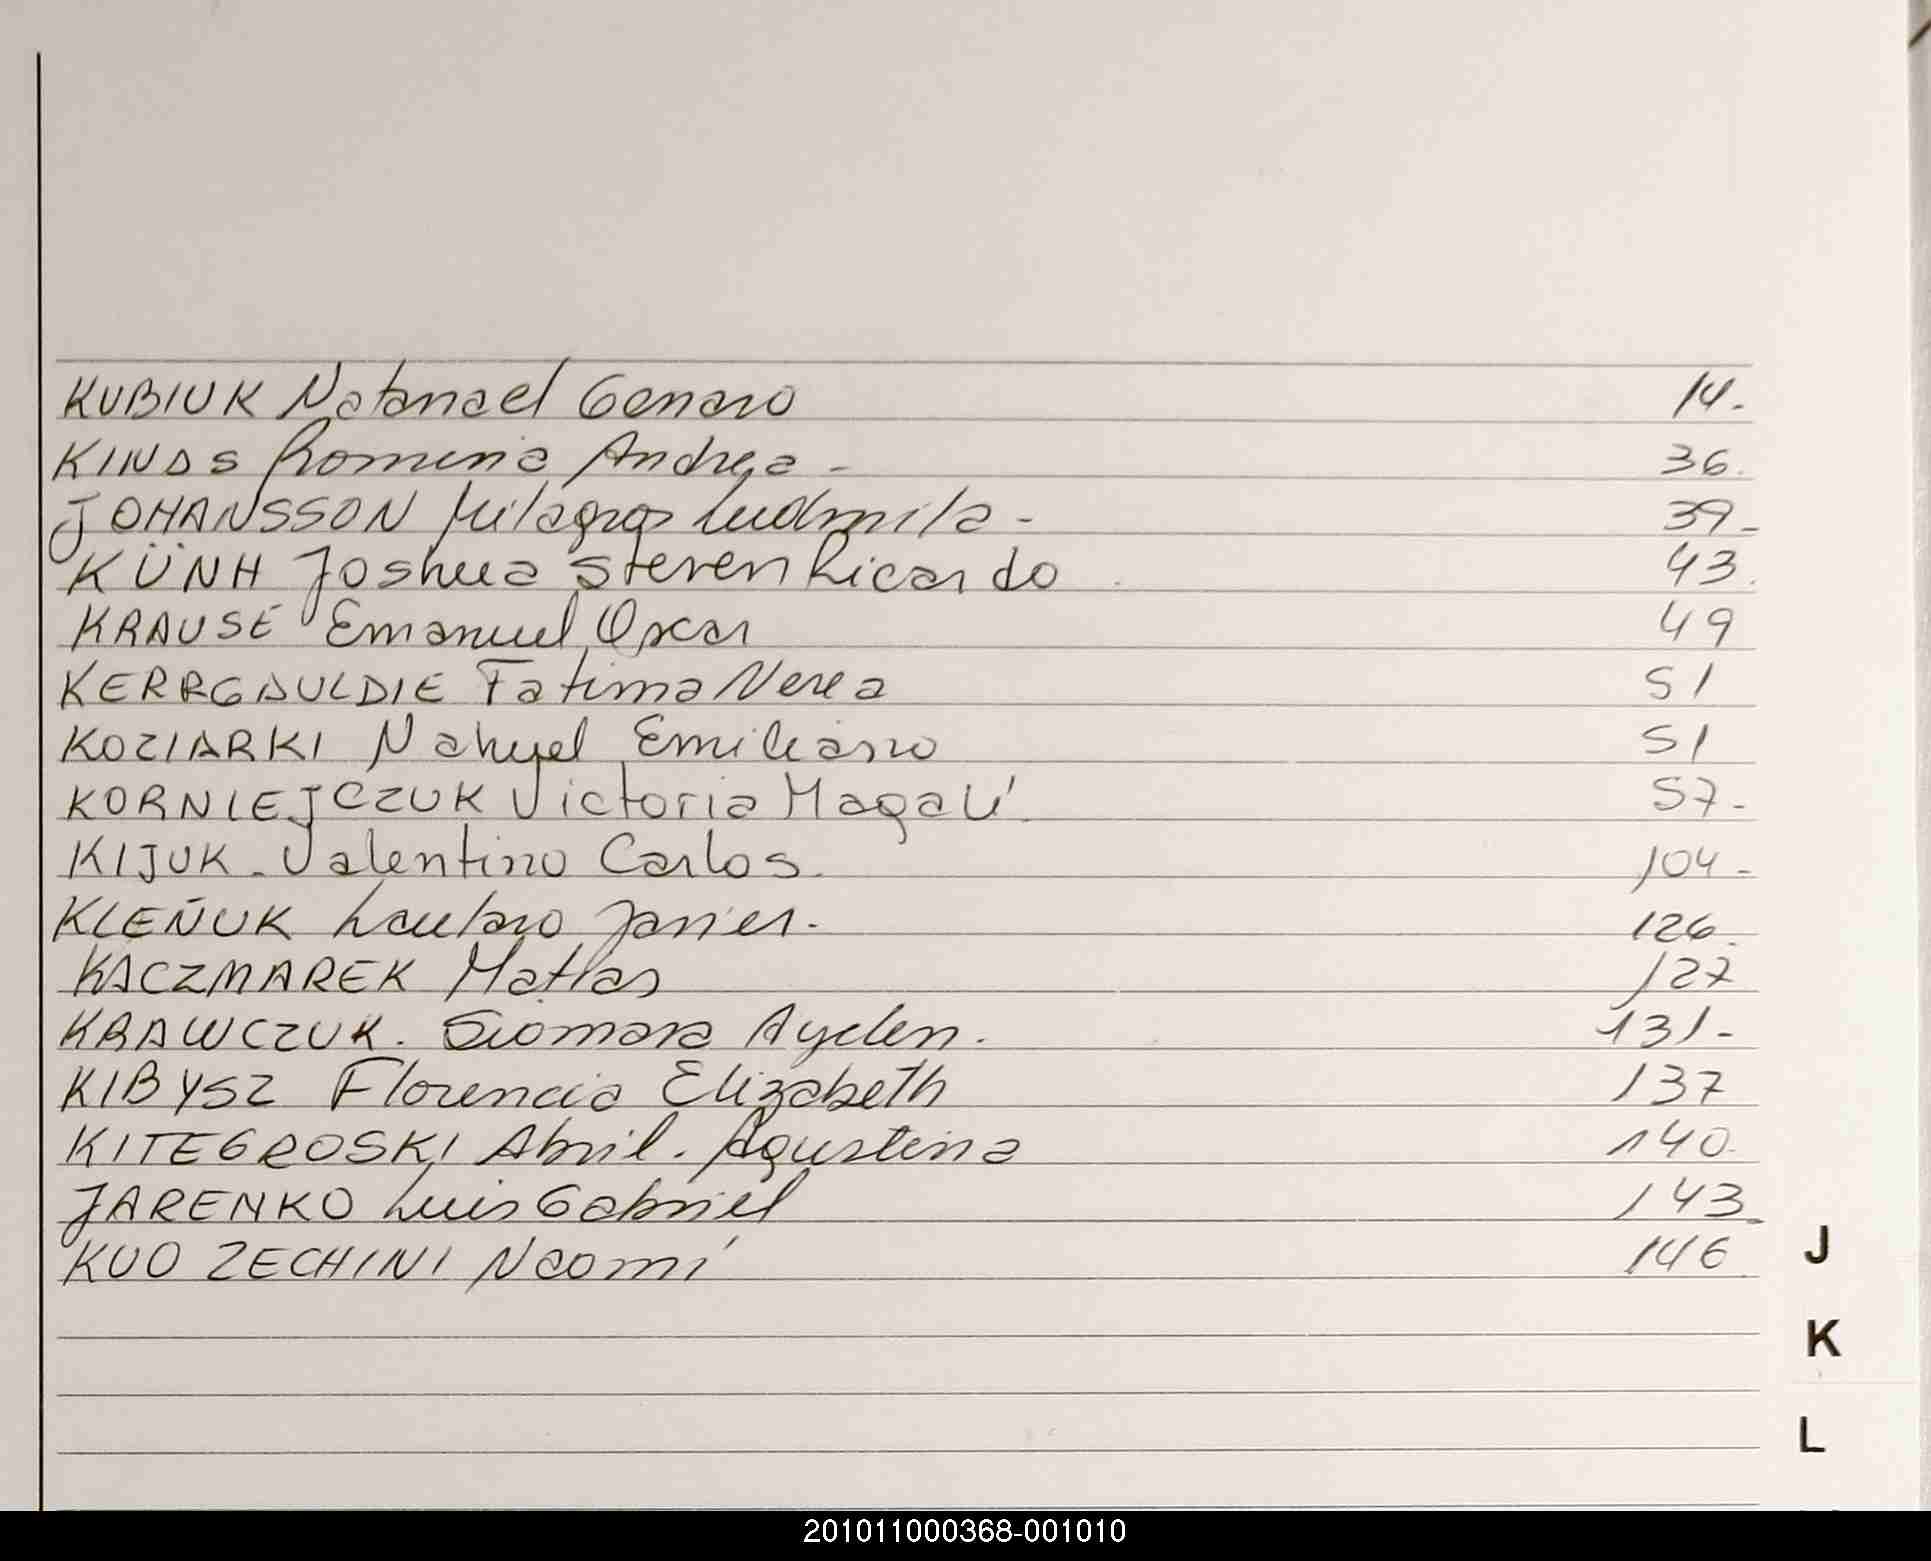 KUBIUK Natanael Genaro 14.
KINDS Romina Andrea - 36.
JOHANSSON Milagros Ludmila - 39-
KÜNH Joshua Steven Ricardo 43.
KRAUSE Emanuel Oscar 49
KERRGAULDIE Fatima Nerea 51
KOZIARKI Nahuel Emiliano 51
KORNIEJCZUK Victoria Magalí 57-
KIJUK - Valentino Carlos. 104-
KLEÑUK Lautaro Javier. 126.
KACZMAREK Matías 127
KRAWCZUK. Siomara Ayelen. 131-
KIBYSZ Florencia Elizabeth 137
KITEGROSKI Abril. Agustina 140.
JARENKO Luis Gabriel 143.
KUO ZECHINI Naomí 146.
J
K
L
201011000368-001010